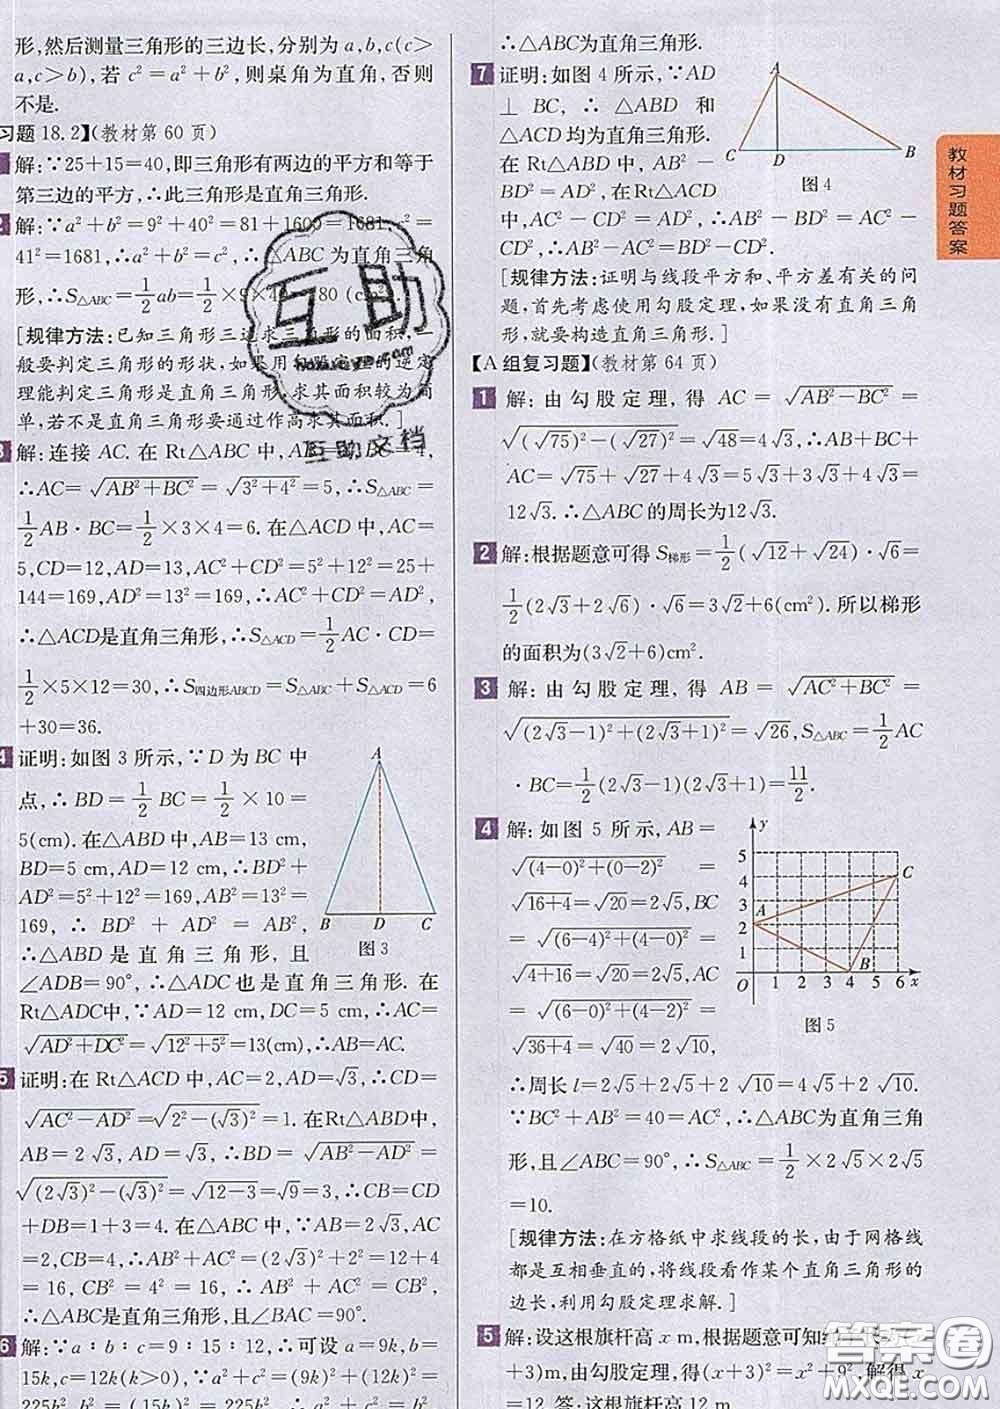 形,然后测量三角形的三边长,分别为 a,b,c(c>
a,c>b),若 c²=a²+b²,则桌角为直角,否则
不是.
习题 18.2】(教材第 60 页)
解:∵25+15=40,即三角形有两边的平方和等于
第三边的平方,∴此三角形是直角三角形.
2 解:∵a²+b²=9²+40²=81+1600=1681,c²=
41²=1681,∴a²+b²=c²,∴△ABC 为直角三角
形,∴S△ABC=1/2ab=1/2×9×40=180 (cm²).
[规律方法:已知三角形三边求三角形的面积,一
般要判定三角形的形状,如果用勾股定理的逆定
理能判定三角形是直角三角形,求其面积较为简
单,若不是直角三角形要通过作高求其面积.]
3 解:连接 AC.在 Rt△ABC 中,AB=3,BC=4,
∴AC=√(AB²+BC²)=√(3²+4²)=5,∴S△ABC=
1/2AB·BC=1/2×3×4=6.在△ACD 中,AC=
5,CD=12,AD=13,AC²+CD²=5²+12²=25+
144=169,AD²=13²=169,∴AC²+CD²=AD²,
∴△ACD是直角三角形,∴S△ACD=1/2AC·CD=
1/2×5×12=30,∴S四边形ABCD=S△ABC+S△ACD=6
+30=36.
4 证明:如图 3 所示,∵D 为 BC 中
点,∴BD=1/2BC=1/2×10=
5(cm).在△ABD 中,AB=13 cm,
BD=5 cm,AD=12 cm,∴BD²+
AD²=5²+12²=169,AB²=13²=
169,∴BD²+AD²=AB²,
∴△ABD 是 直 角 三 角 形, 且
∠ADB=90°,∴△ADC也是直角三角形.在
Rt△ADC中,∵AD=12 cm,DC=5 cm,∴AC=
√(AD²+DC²)=√(12²+5²)=13(cm),∴AB=AC.
A
B D C
图 3
5 证明:在 Rt△ACD 中,AC=2,AD=√3,∴CD=
√(AC²−AD²)=√(2²−(√3)²)=1.在Rt△ABD中,
AB=2√3,AD=√3,∴BD=√(AB²−AD²)=
√((2√3)²−(√3)²)=√(12−3)=√9=3,∴CB=CD
+DB=1+3=4.在△ABC 中,∵AB=2√3,AC
=2,CB=4,∴AB²+AC²=(2√3)²+2²=12+4
=16,CB²=4²=16,∴AB²+AC²=CB²,
∴△ABC是直角三角形,且∠BAC=90°.
6 解:∵a∶b∶c=9∶15∶12,∴可设 a=9k,b=
15k,c=12k(k>0),∴a²+c²=(9k)²+(12k)²=
225k²,b²=(15k)²=225k²,∴a²+c²=b²,
∴△ABC为直角三角形.
7 证明:如图 4 所示,∵AD
⊥BC,∴△ABD 和
△ACD 均为直角三角形.
在 Rt△ABD 中,AB²−
BD²=AD²,在Rt△ACD
中,AC²−CD²=AD²,∴AB²−BD²=AC²−
CD²,∴AB²−AC²=BD²−CD².
A
C D B
图 4
[规律方法:证明与线段平方和、平方差有关的问
题,首先考虑使用勾股定理,如果没有直角三角
形,就要构造直角三角形.]
【A 组复习题】(教材第 64 页)
1 解:由勾股定理,得 AC=√(AB²−BC²)=
√((√75)²−(√27)²)=√48=4√3.∴AB+BC+
AC=√75+√27+√48=5√3+3√3+4√3=
12√3.∴△ABC 的周长为12√3.
2 解:根据题意可得 S梯形=1/2(√12+√24)·√6=
1/2(2√3+2√6)·√6=3√2+6(cm²).所以梯形
的面积为(3√2+6)cm².
3 解:由勾股定理,得 AB=√(AC²+BC²)=
√((2√3−1)²+(2√3+1)²)=√26,S△ABC=1/2AC
·BC=1/2(2√3−1)(2√3+1)=11/2.
4 解:如图 5 所示,AB=
√((4−0)²+(0−2)²)=
√(16+4)=√20=2√5,BC
=√((6−4)²+(4−0)²)=
√(4+16)=2√5,AC=
√((6−0)²+(4−2)²)=
√(36+4)=√40=2√10,
y
5
4
3
2
1
O 1 2 3 4 5 6 x
A
B
C
图 5
∴周长 l=2√5+2√5+2√10=4√5+2√10.
∵BC²+AB²=40=AC²,∴△ABC为直角三角
形,且∠ABC=90°,∴S△ABC=1/2×2√5×2√5
=10.
[规律方法:在方格纸中求线段的长,由于网格线
都是互相垂直的,将线段看作某个直角三角形的
边长,利用勾股定理求解.]
5 解:设这根旗杆高 x m,根据题意可知
+3)m,由勾股定理,得(x+3)²=x²+9²,解得 x
=12.答:这根旗杆高 12 m.
教材习题答案
互助
互助文档
答案圈
MXQE.COM